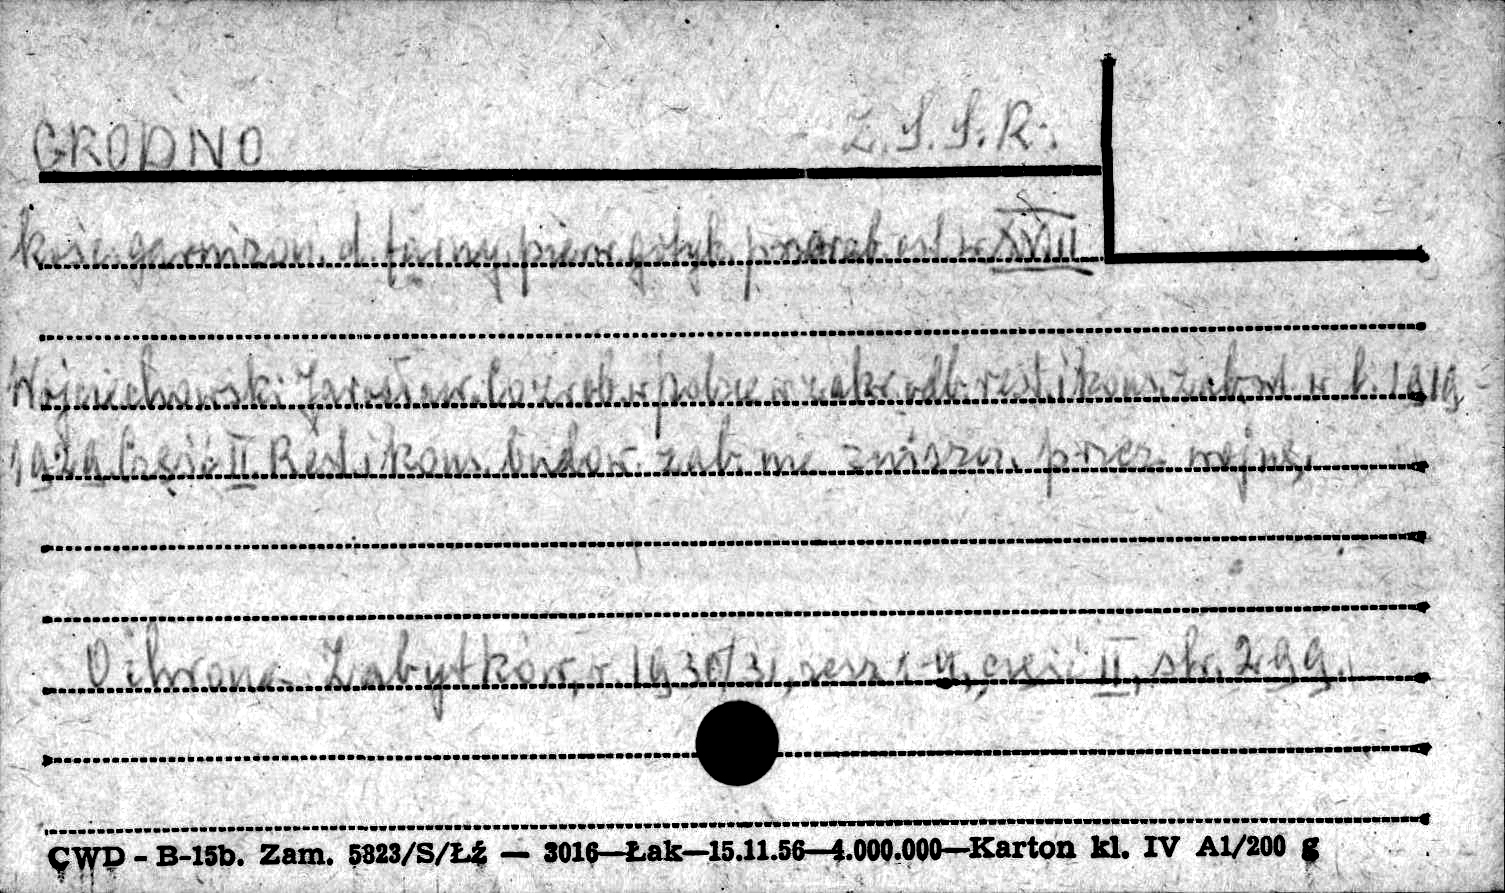 GRODNO Z.S.S.R.
kość. garnizon. d. farny, pierw. gotyk. przerob. ost. w. XVIII
Wojciechowski Jarosław. Co zrob. w polsce w zakr. odb. rest. i kons. zabyt. w l. 1919-
1929 Część II. Rest. i kons. budow. zab. nie zniszcz. przez wojnę.
Ochrona Zabytków, r. 1930/31, zesz 1-4, część II, str. 299.
CWD - B-15b. Zam. 5823/S/Łź — 3016—Łak—15.11.56—4.000.000—Karton kl. IV A1/200 g